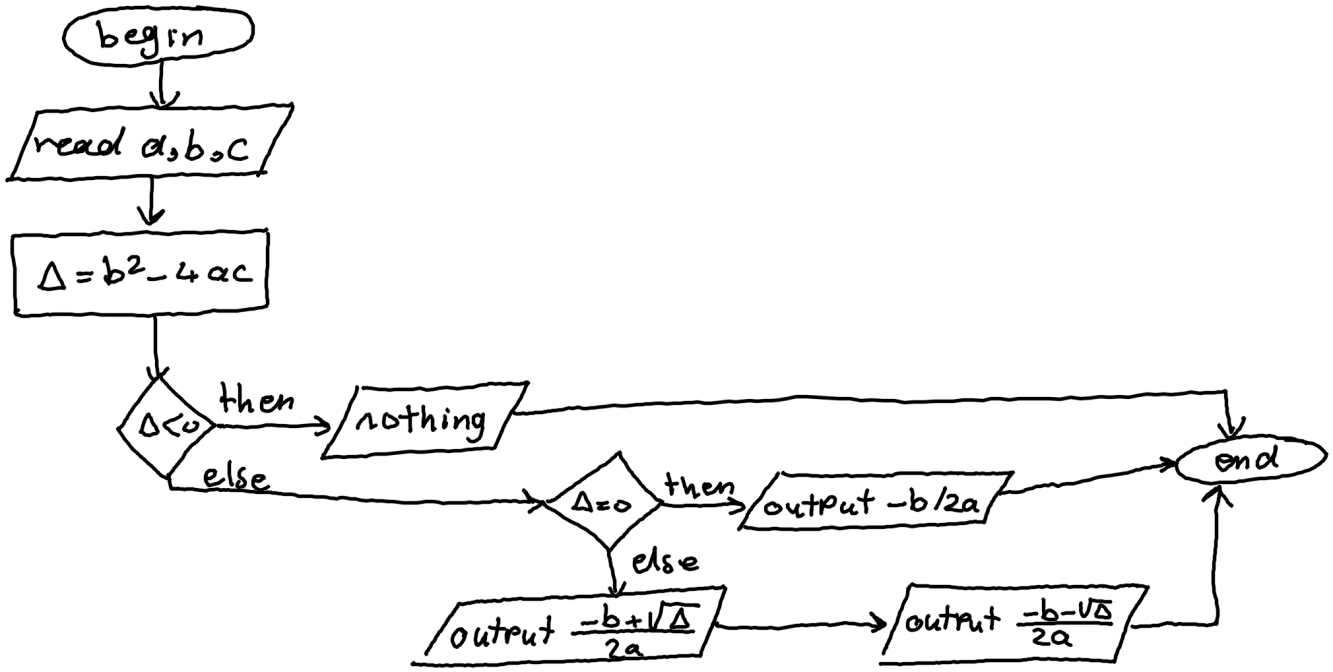 begin
read a,b,c
Δ = b² - 4ac
Δ<0
then
nothing
else
end
Δ=0
then
output -b/2a
else
output (-b+√Δ)/2a
output (-b-√Δ)/2a